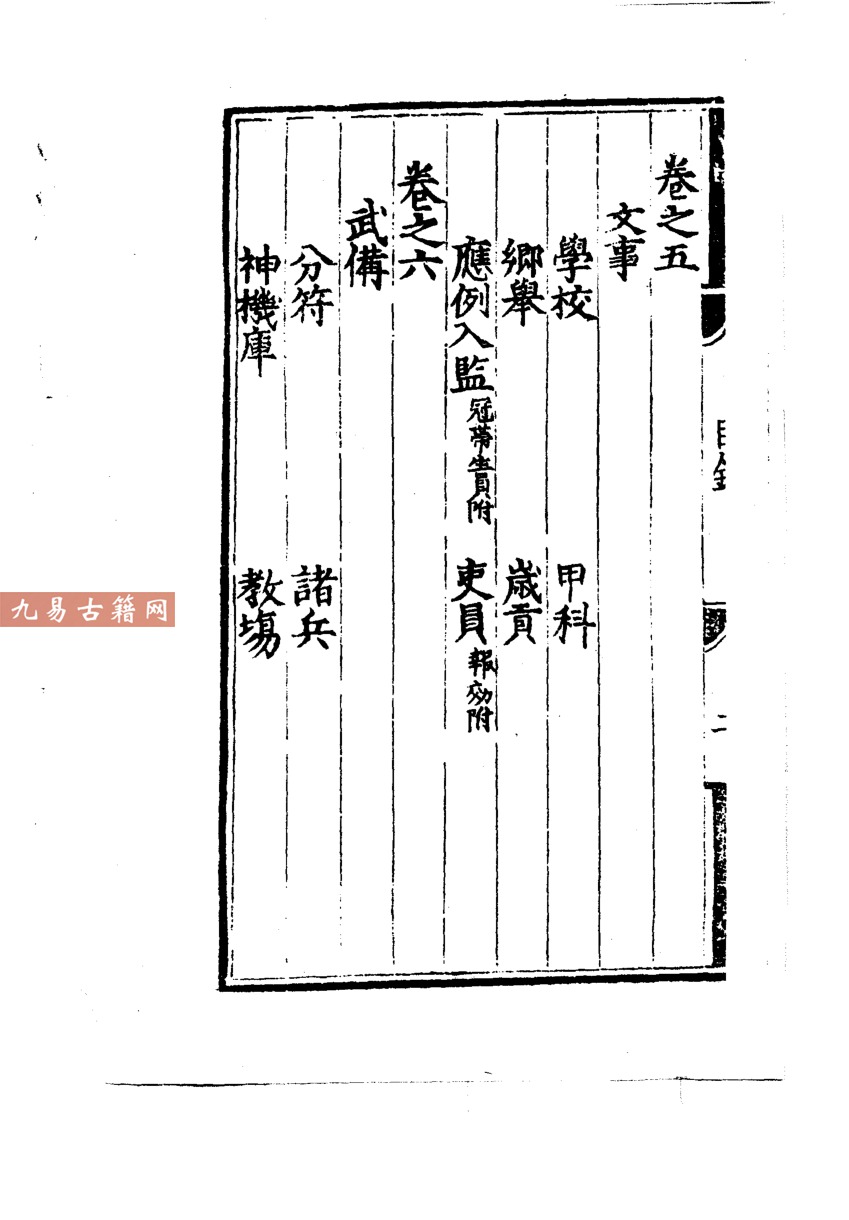 卷之五
文事
學校 甲科
鄉舉 歲貢
應例入監冠帶生員附 吏員報効附
卷之六
武備
分符 諸兵
神機庫 教塲
目錄
二
九易古籍网